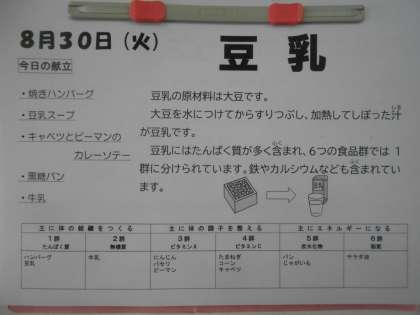 8月30日（火）
豆乳
今日の献立
・焼きハンバーグ
・豆乳スープ
・キャベツとピーマンの
カレーソテー
・黒糖パン
・牛乳
豆乳の原材料は大豆です。
大豆を水につけてからすりつぶし、加熱してしぼった汁
が豆乳です。
豆乳にはたんぱく質が多く含まれ、6つの食品群では1
群に分けられています。鉄やカルシウムなども含まれてい
ます。
主に体の組織をつくる 主に体の調子を整える 主にエネルギーになる
1群 2群 3群 4群 5群 6群
たんぱく質 無機質 ビタミンA ビタミンC 炭水化物 脂肪
ハンバーグ 牛乳 にんじん たまねぎ パン サラダ油
豆乳 パセリ コーン じゃがいも
ピーマン キャベツ